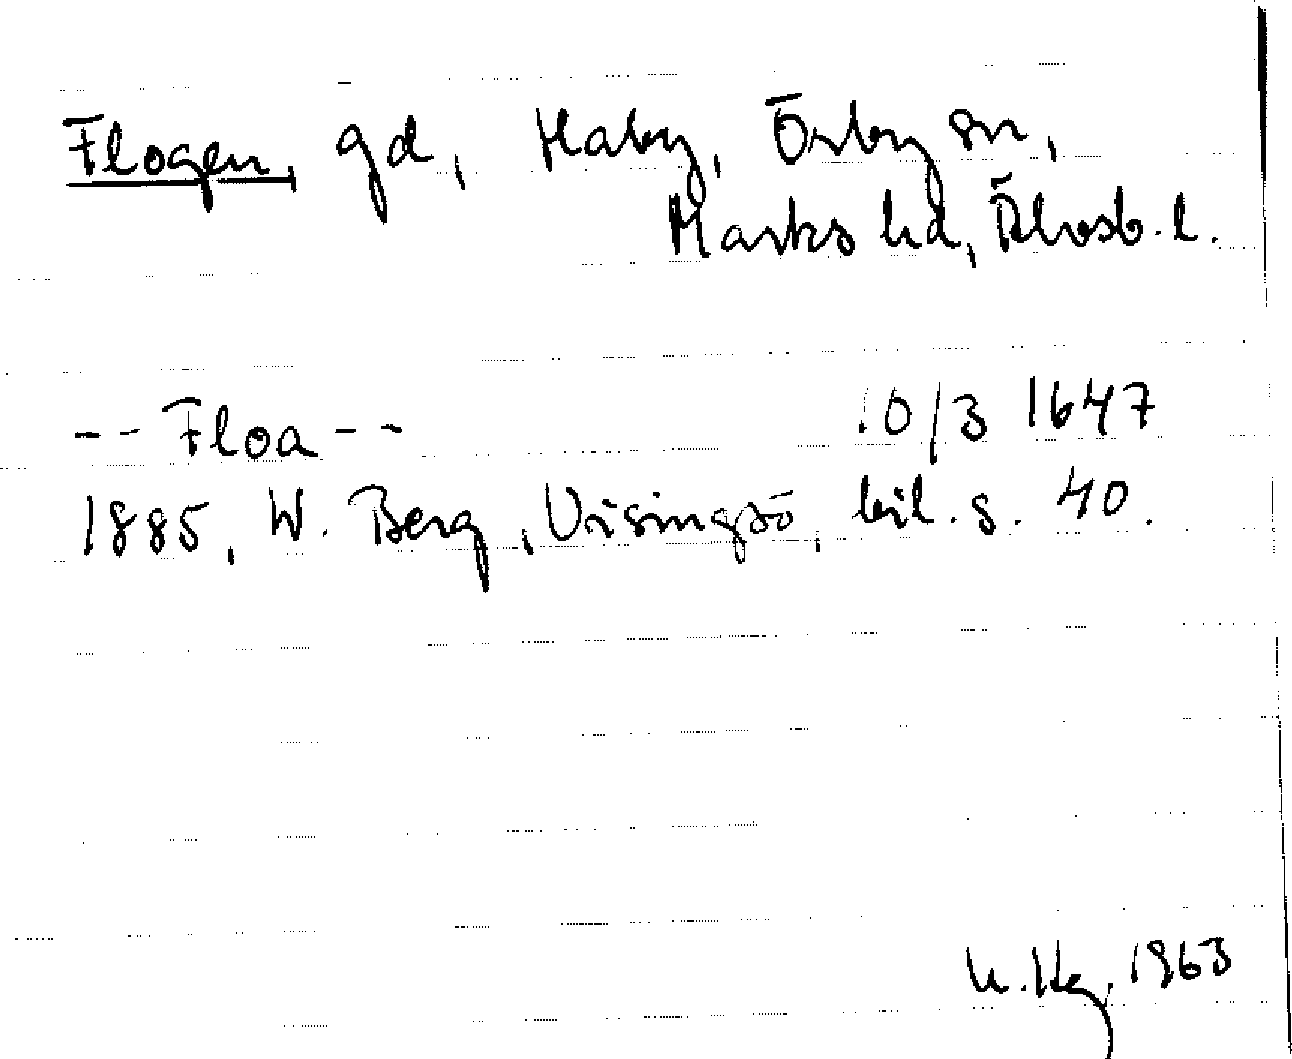 Flogen, gd, Haby, Örby sn,
Marks hd, Älvsb. l.
-- Floa -- 10/3 1647
1885, W. Berg, Visingsö, bil. s. 40.
1963